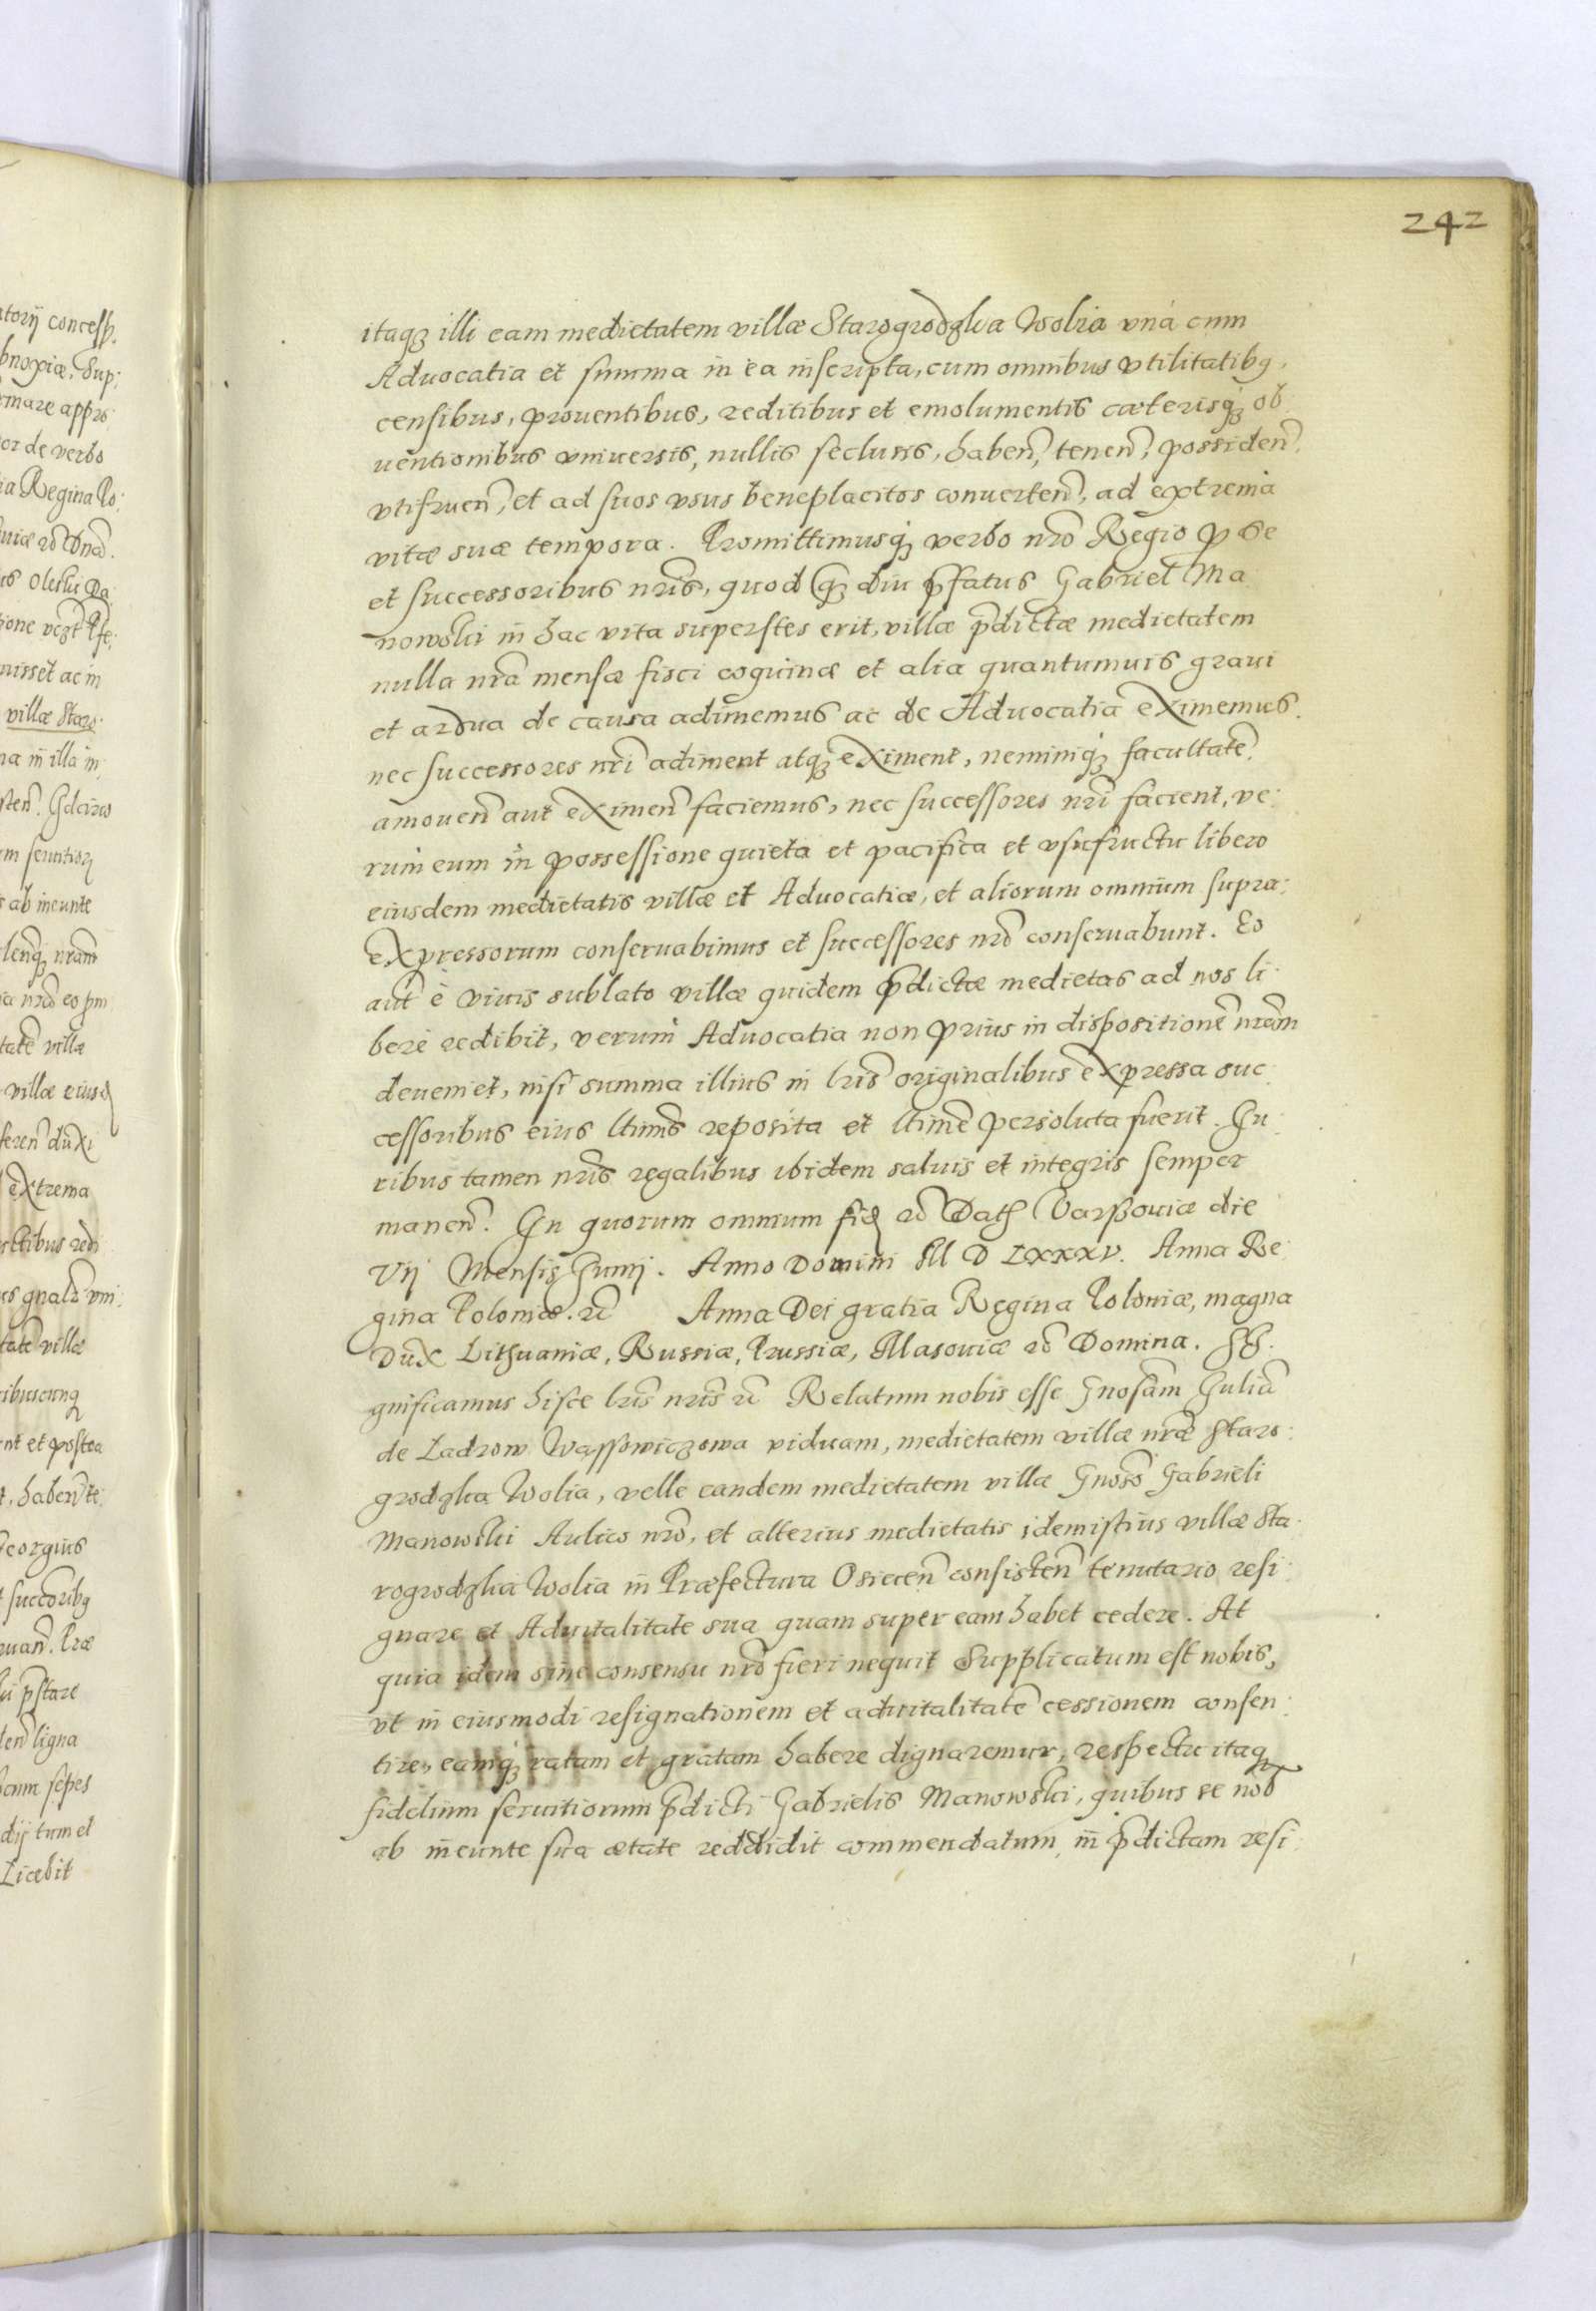 242
itaq₃ illi eam medietatem villæ Starogrodzka Wolia vnà cum
Aduocatia et summa in ea inscripta, cum omnibus vtilitatibꝫ,
censibus, prouentibus, reditibus et emolumentis cæterisq₃ ob:
uentionibus vniuersis, nullis seclusis, habeñ, teneñ, possideñ,
vtifrueñ, et ad suos vsus beneplacitos conuerteñ, ad extrema
vitæ suæ tempora. Promittimusq₃ verbo nrõ Regio p se
et successoribus nrĩs, quod q̃ diu p̃fatus Gabriel Ma
nowski in hac vita superstes erit, villæ p̃dictæ medietatem
nulla nrã mensæ fisci coquinæ et alia quantumuis graui
et ardua de causa adimemus ac de Aduocatia eximemus.
nec successores nrĩ adiment atq₃ eximent, neminiq₃ facultatẽ
amoueñ aut eximeñ faciemus, nec successores nrĩ facient, ve:
rum eum in possessione quieta et pacifica et vsufructu libero
eiusdem medietatis villæ et Aduocatiæ, et aliorum omnium supra:
expressorum conseruabimus et successores nrõ conseruabunt. Eo
aut̃ è viuis sublato villæ quidem p̃dictæ medietas ad nos li:
berè redibit, verum Aduocatia non prius in dispositionẽ nrãm
deueniet, nisi summa illius in lrĩs originalibus expressa suc:
cessoribus eius ltimĩs reposita et ltimẽ persoluta fuerit. Iu:
ribus tamen nrĩs regalibus ibidem saluis et integris semper
maneñ. In quorum omnium fid̃ rc̃ Datꝭ Varssouiæ die
Vij Mensis Iunij. Anno Domini M D LXXXV. Anna Re:
gina Poloniæ. rc̃ Anna Dei gratia Regina Poloniæ, magna
Dux Lithuaniæ, Russiæ, Prussiæ, Masouiæ rc̃ Domina. Si:
gnificamus hisce lrĩs nrĩs rc̃ Relatum nobis esse Gnosãm Iuliã
de Ladzow Wassowiczowa viduam, medietatem villæ nrãe Staro:
grodzka Wolia, velle eandem medietatem villæ Gnosõ Gabrieli
Manowski Aulico nrõ, et alterius medietatis idemistius villæ Sta:
rogrodzka Wolia in Præfectura Osieceñ consisteñ tenutario resi:
gnare et Aduitalitate sua quam super eam habet cedere. At
quia idem sine consensu nrõ fieri nequit Supplicatum est nobis,
vt in eiusmodi resignationem et aduitalitatẽ cessionem consen:
tire, eamq₃ ratam et gratam habere dignaremur, respectu itaq₃
fidelium seruitiorum p̃dicti Gabrielis Manowski, quibus se nob̃
ab ineunte sua ætate reddidit commendatum, in p̃dictam resi: